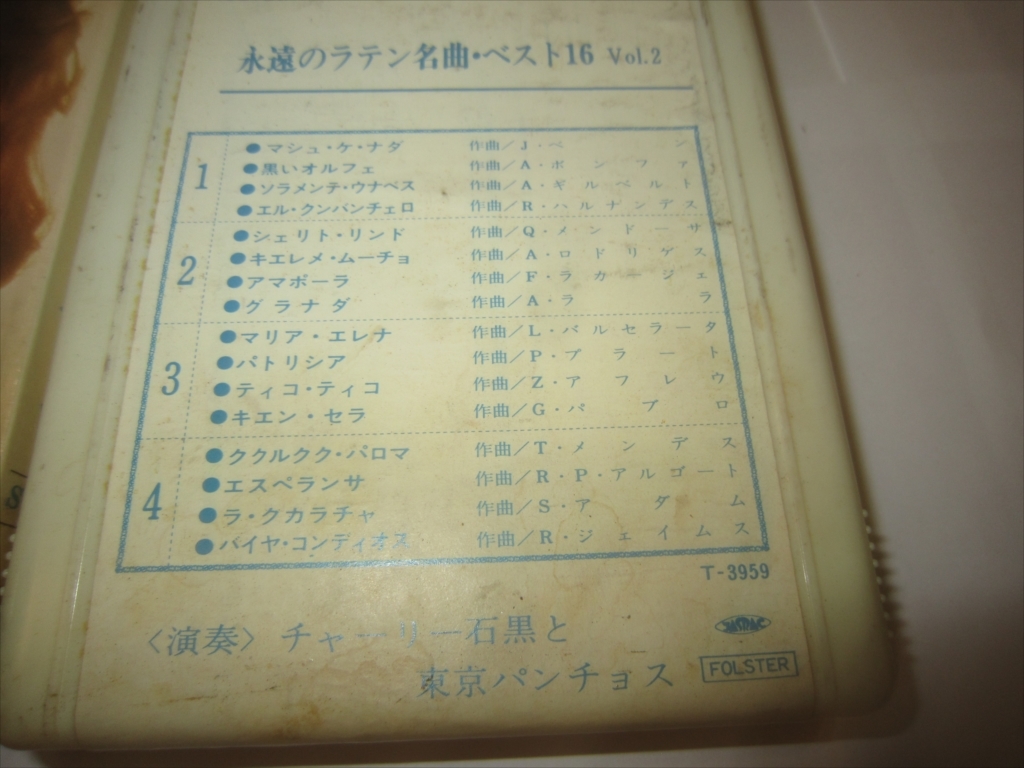 永遠のラテン名曲・ベスト16 Vol.2
1
●マシュ・ケ・ナダ 作曲/J・ベン
●黒いオルフェ 作曲/A・ボンファ
●ソラメンテ・ウナベス 作曲/A・ギルベルト
●エル・クンバンチェロ 作曲/R・ハルナンデス
2
●シェリト・リンド 作曲/Q・メンドーサ
●キエレメ・ムーチョ 作曲/A・ロドリゲス
●アマポーラ 作曲/F・ラカージェ
●グラナダ 作曲/A・ララ
3
●マリア・エレナ 作曲/L・バルセラータ
●パトリシア 作曲/P・プラート
●ティコ・ティコ 作曲/Z・アブレウ
●キエン・セラ 作曲/G・パブロ
4
●ククルクク・パロマ 作曲/T・メンデス
●エスペランサ 作曲/R・P・アルゴート
●ラ・クカラチャ 作曲/S・アダム
●バイヤ・コンディオス 作曲/R・ジェイムス
T-3959
〈演奏〉チャーリー石黒と
東京パンチョス
JASRAC
FOLSTER